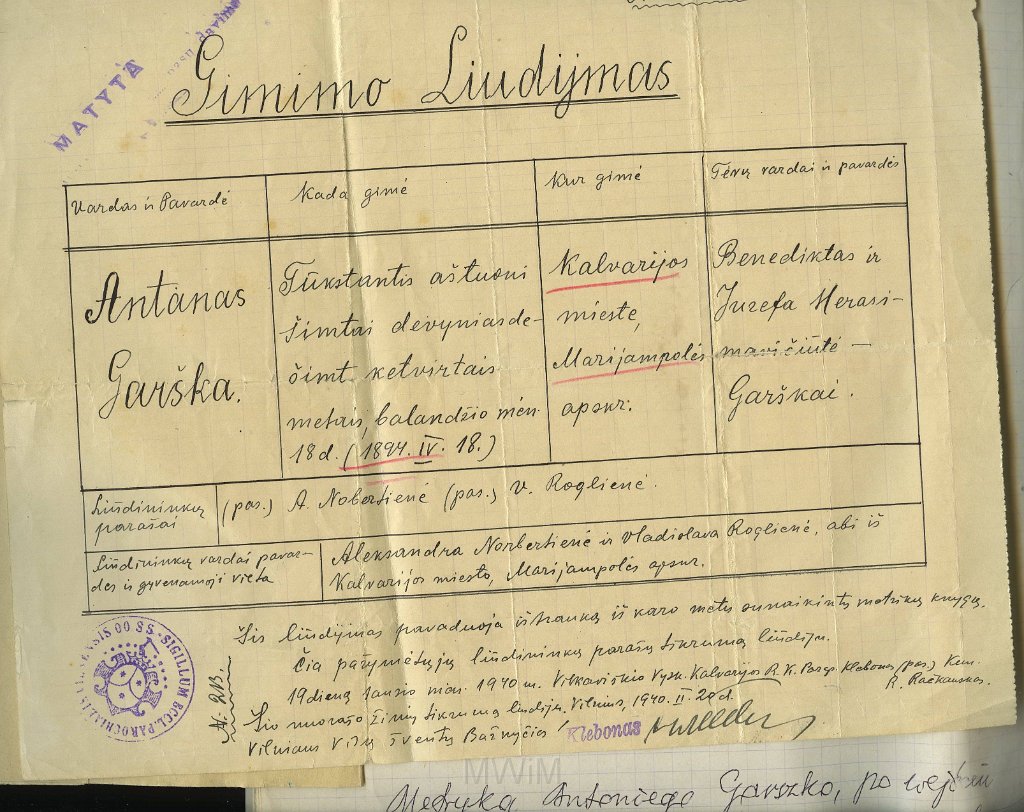 MATYTA
Gimimo Liudijmas
Vardas ir Pavardė
Kada gimė
Kur gimė
Tėvų vardai ir pavardės
Antanas
Garška.
Tūkstantis aštuoni
šimtai devyniasde-
šimt ketvirtais
metais, balandžio mėn.
18 d. (1894. IV. 18.)
Kalvarijos
mieste,
Marijampolės
apskr.
Benediktas ir
Juzefa Merasi-
mavičiūtė —
Garškai.
Liūdininkų
parašai
(pas.) A. Nobertienė (pas.) V. Roglienė.
Liūdininkų vardai pavar-
dės ir gyvenamoji vieta
Aleksandra Norbertienė ir Vladislava Roglienė, abi iš
Kalvarijos miesto, Marijampolės apskr.
Šis liūdijmas pavaduoja ištrauką iš karo metų sunaikintų metrikų knygų.
Čia pažymėtųjų liūdininkų parašų tikrumą liūdiju.
19 dieną sausio mėn. 1940 m. Vilkaviškio Vysk. Kalvarijos R. K. Parap. Klebonas (pas.) Kun.
R. Račkauskas.
Šio nuorašo žinių tikrumą liudiju. Vilnius, 1940. II. 20 d.
Vilniaus Visų Šventų Bažnyčios
Klebonas
N. 213
OO SS. SIGILLUM ECCL. PAROCHIALIS VILNENSIS
MWiM
Metryka Antoniego Garszko, po